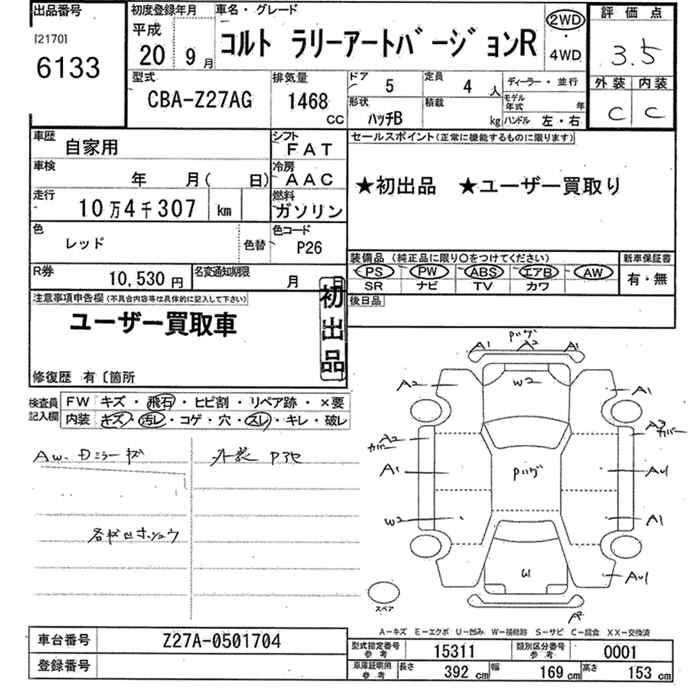 出品番号 初度登録年月 車名・グレード 評価点
[2170] 平成 2WD
6133 20 9月 コルト ラリーアートバージョンR 4WD 3.5
型式 排気量 ドア 定員 ディーラー・並行 外装 内装
CBA-Z27AG 1468 CC 5 4人 モデル年式 年 C C
形状 積載 kg ハンドル 左・右
ハッチB
車歴 自家用 シフト FAT セールスポイント(正常に機能するものに限ります)
車検 年 月( 日) 冷房 AAC ★初出品 ★ユーザー買取り
走行 10万4千307 km 燃料 ガソリン
色 レッド 色替 色コード P26
装備品 (純正品に限り○をつけてください) 新車保証書
PS PW ABS エアB AW 有・無
SR ナビ TV カワ
R券 10,530円 名変通知期限 月 後日品
注意事項申告欄(不具合内容等は具体的に記入して下さい) 初出品
ユーザー買取車
修復歴 有〔箇所
検査員記入欄 FW キズ・飛石・ヒビ割・リペア跡・×要
内装 キズ・汚レ・コゲ・穴・スレ・キレ・破レ
AW.Dミラーキズ 外装
パハゲ
A1 A2 A1
A2 W2 A1
A2 カバー A3 カバー
A1 パハゲ AU1
W2 A1
W1 AU1
スペア
A-キズ E-エクボ U-凹み W-補修跡 S-サビ C-腐食 XX-交換済
車台番号 Z27A-0501704 型式指定番号 参考 15311 類別区分番号 参考 0001
登録番号 車庫証明用 参考 長さ 392cm 幅 169cm 高さ 153cm